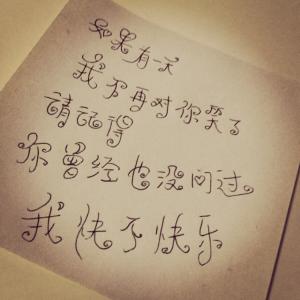 如果有一天
我不再对你笑了
請记得
你曾经也没问过
我快不快乐